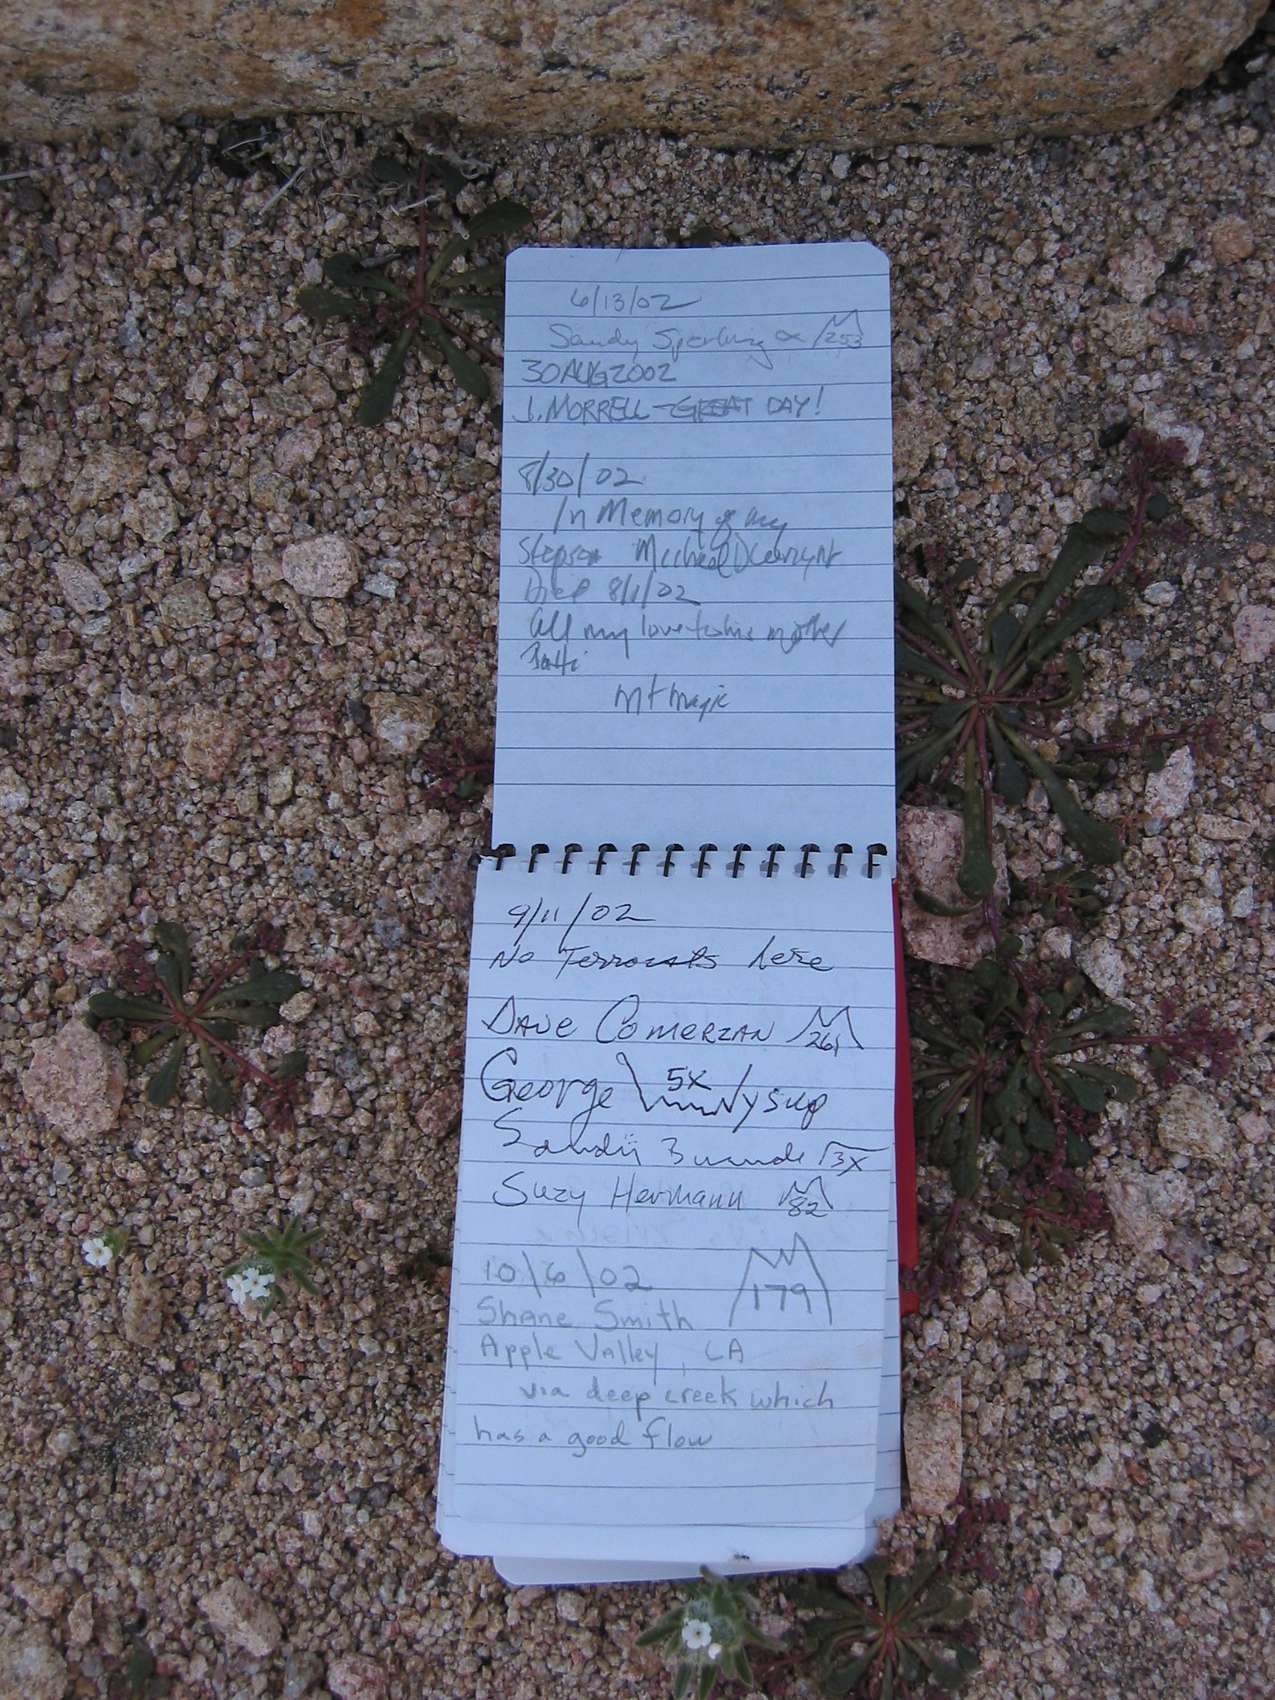 6/13/02
Sandy Sperling 253
30 AUG 2002
J. MORRELL - GREAT DAY!
8/30/02
In Memory of my
Stepson Micheal
Died 8/1/02
all my love to his mother
Patti
Mt Magic
9/11/02
No here
DAVE COMERZAN 261
George 5X ysup
Sandii 3X
Suzy Hermann 82
10/6/02 179
Shane Smith
Apple Valley, CA
via deep creek which
has a good flow